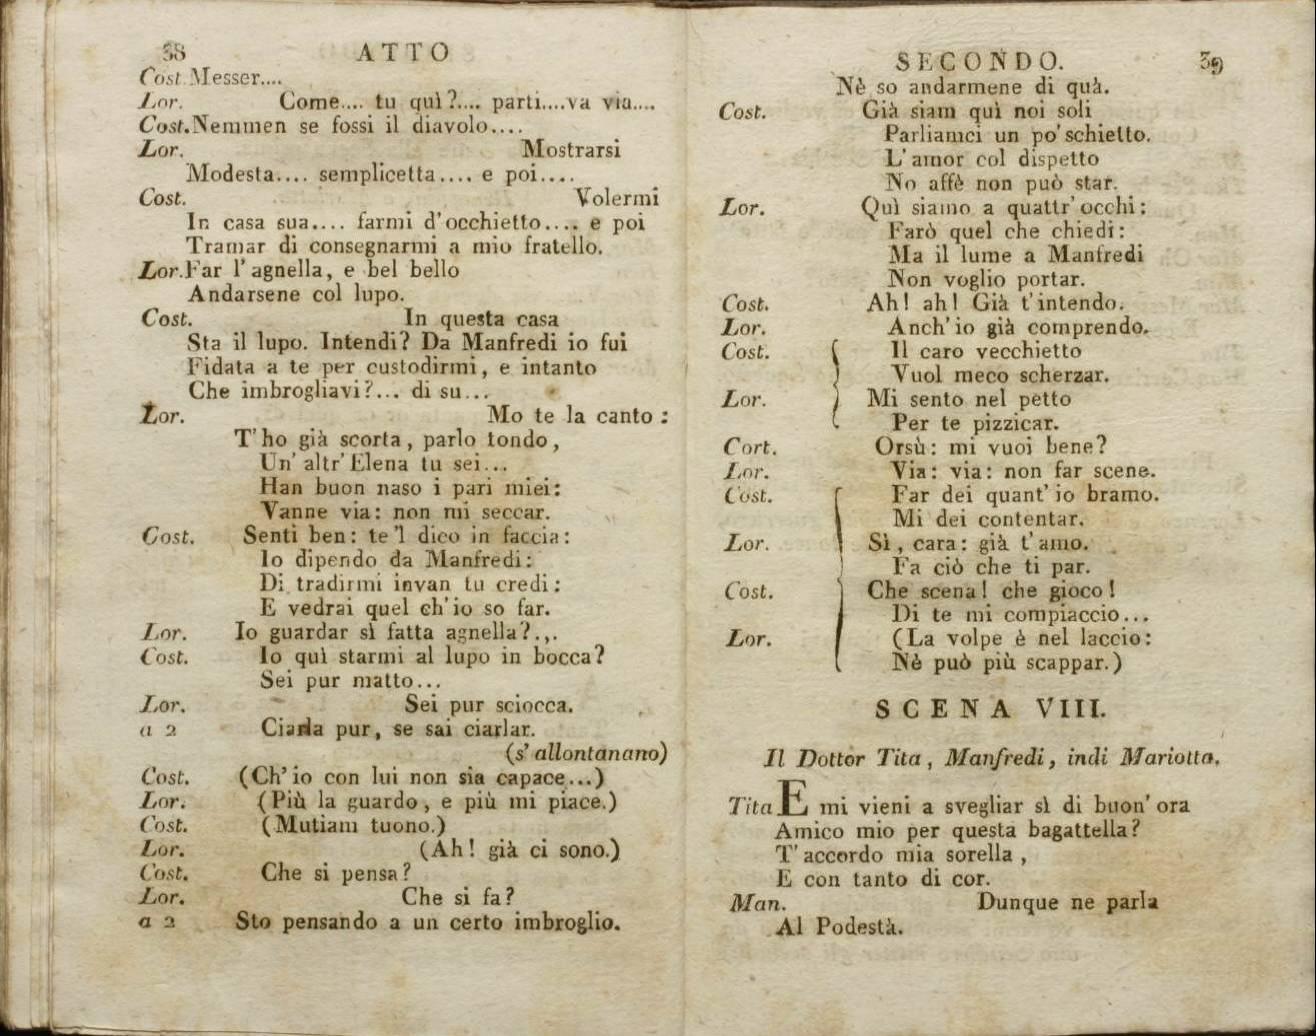 38 ATTO
Cost. Messer....
Lor. Come.... tu quì?.... parti....va via....
Cost. Nemmen se fossi il diavolo....
Lor. Mostrarsi
Modesta.... semplicetta.... e poi....
Cost. Volermi
In casa sua.... farmi d'occhietto.... e poi
Tramar di consegnarmi a mio fratello.
Lor. Far l'agnella, e bel bello
Andarsene col lupo.
Cost. In questa casa
Sta il lupo. Intendi? Da Manfredi io fui
Fidata a te per custodirmi, e intanto
Che imbrogliavi?... di su...
Lor. Mo te la canto:
T'ho già scorta, parlo tondo,
Un'altr'Elena tu sei...
Han buon naso i pari miei:
Vanne via: non mi seccar.
Cost. Senti ben: te'l dico in faccia:
Io dipendo da Manfredi:
Di tradirmi invan tu credi:
E vedrai quel ch'io so far.
Lor. Io guardar sì fatta agnella?.,.
Cost. Io quì starmi al lupo in bocca?
Sei pur matto...
Lor. Sei pur sciocca.
a 2 Ciarla pur, se sai ciarlar.
(s'allontanano)
Cost. (Ch'io con lui non sia capace...)
Lor. (Più la guardo, e più mi piace.)
Cost. (Mutiam tuono.)
Lor. (Ah! già ci sono.)
Cost. Che si pensa?
Lor. Che si fa?
a 2 Sto pensando a un certo imbroglio.
SECONDO. 39
Nè so andarmene di quà.
Cost. Già siam quì noi soli
Parliamci un po'schietto.
L'amor col dispetto
No affè non può star.
Lor. Quì siamo a quattr'occhi:
Farò quel che chiedi:
Ma il lume a Manfredi
Non voglio portar.
Cost. Ah! ah! Già t'intendo.
Lor. Anch'io già comprendo.
Cost. Il caro vecchietto
Vuol meco scherzar.
Lor. Mi sento nel petto
Per te pizzicar.
Cort. Orsù: mi vuoi bene?
Lor. Via: via: non far scene.
Cost. Far dei quant'io bramo.
Mi dei contentar.
Lor. Sì, cara: già t'amo.
Fa ciò che ti par.
Cost. Che scena! che gioco!
Di te mi compiaccio...
Lor. (La volpe è nel laccio:
Nè può più scappar.)
SCENA VIII.
Il Dottor Tita, Manfredi, indi Mariotto.
Tita E mi vieni a svegliar sì di buon'ora
Amico mio per questa bagattella?
T'accordo mia sorella,
E con tanto di cor.
Man. Dunque ne parla
Al Podestà.